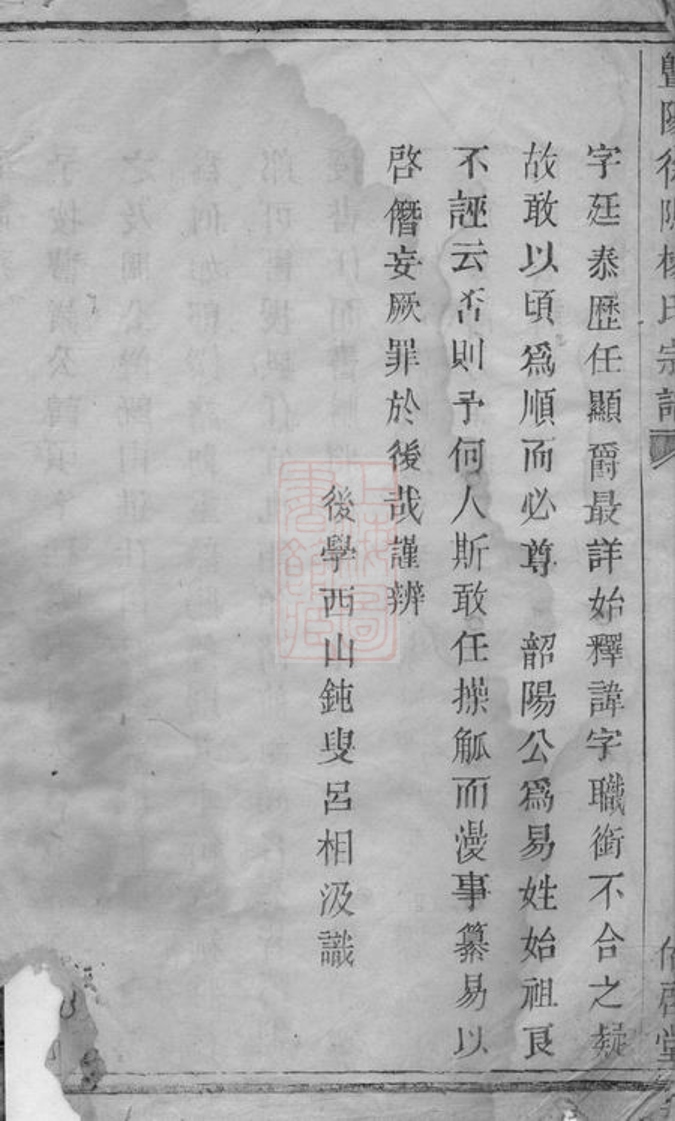 暨陽徐陳楊氏宗譜
啓堂
字廷泰歷任顯爵最詳始釋諱字職銜不合之疑
故敢以頃爲順而必尊 韶陽公爲易姓始祖良
不誣云否則予何人斯敢任操觚而漫事纂易以
啓僭妄厥罪於後哉謹辨
後學西山鈍叟呂相汲識